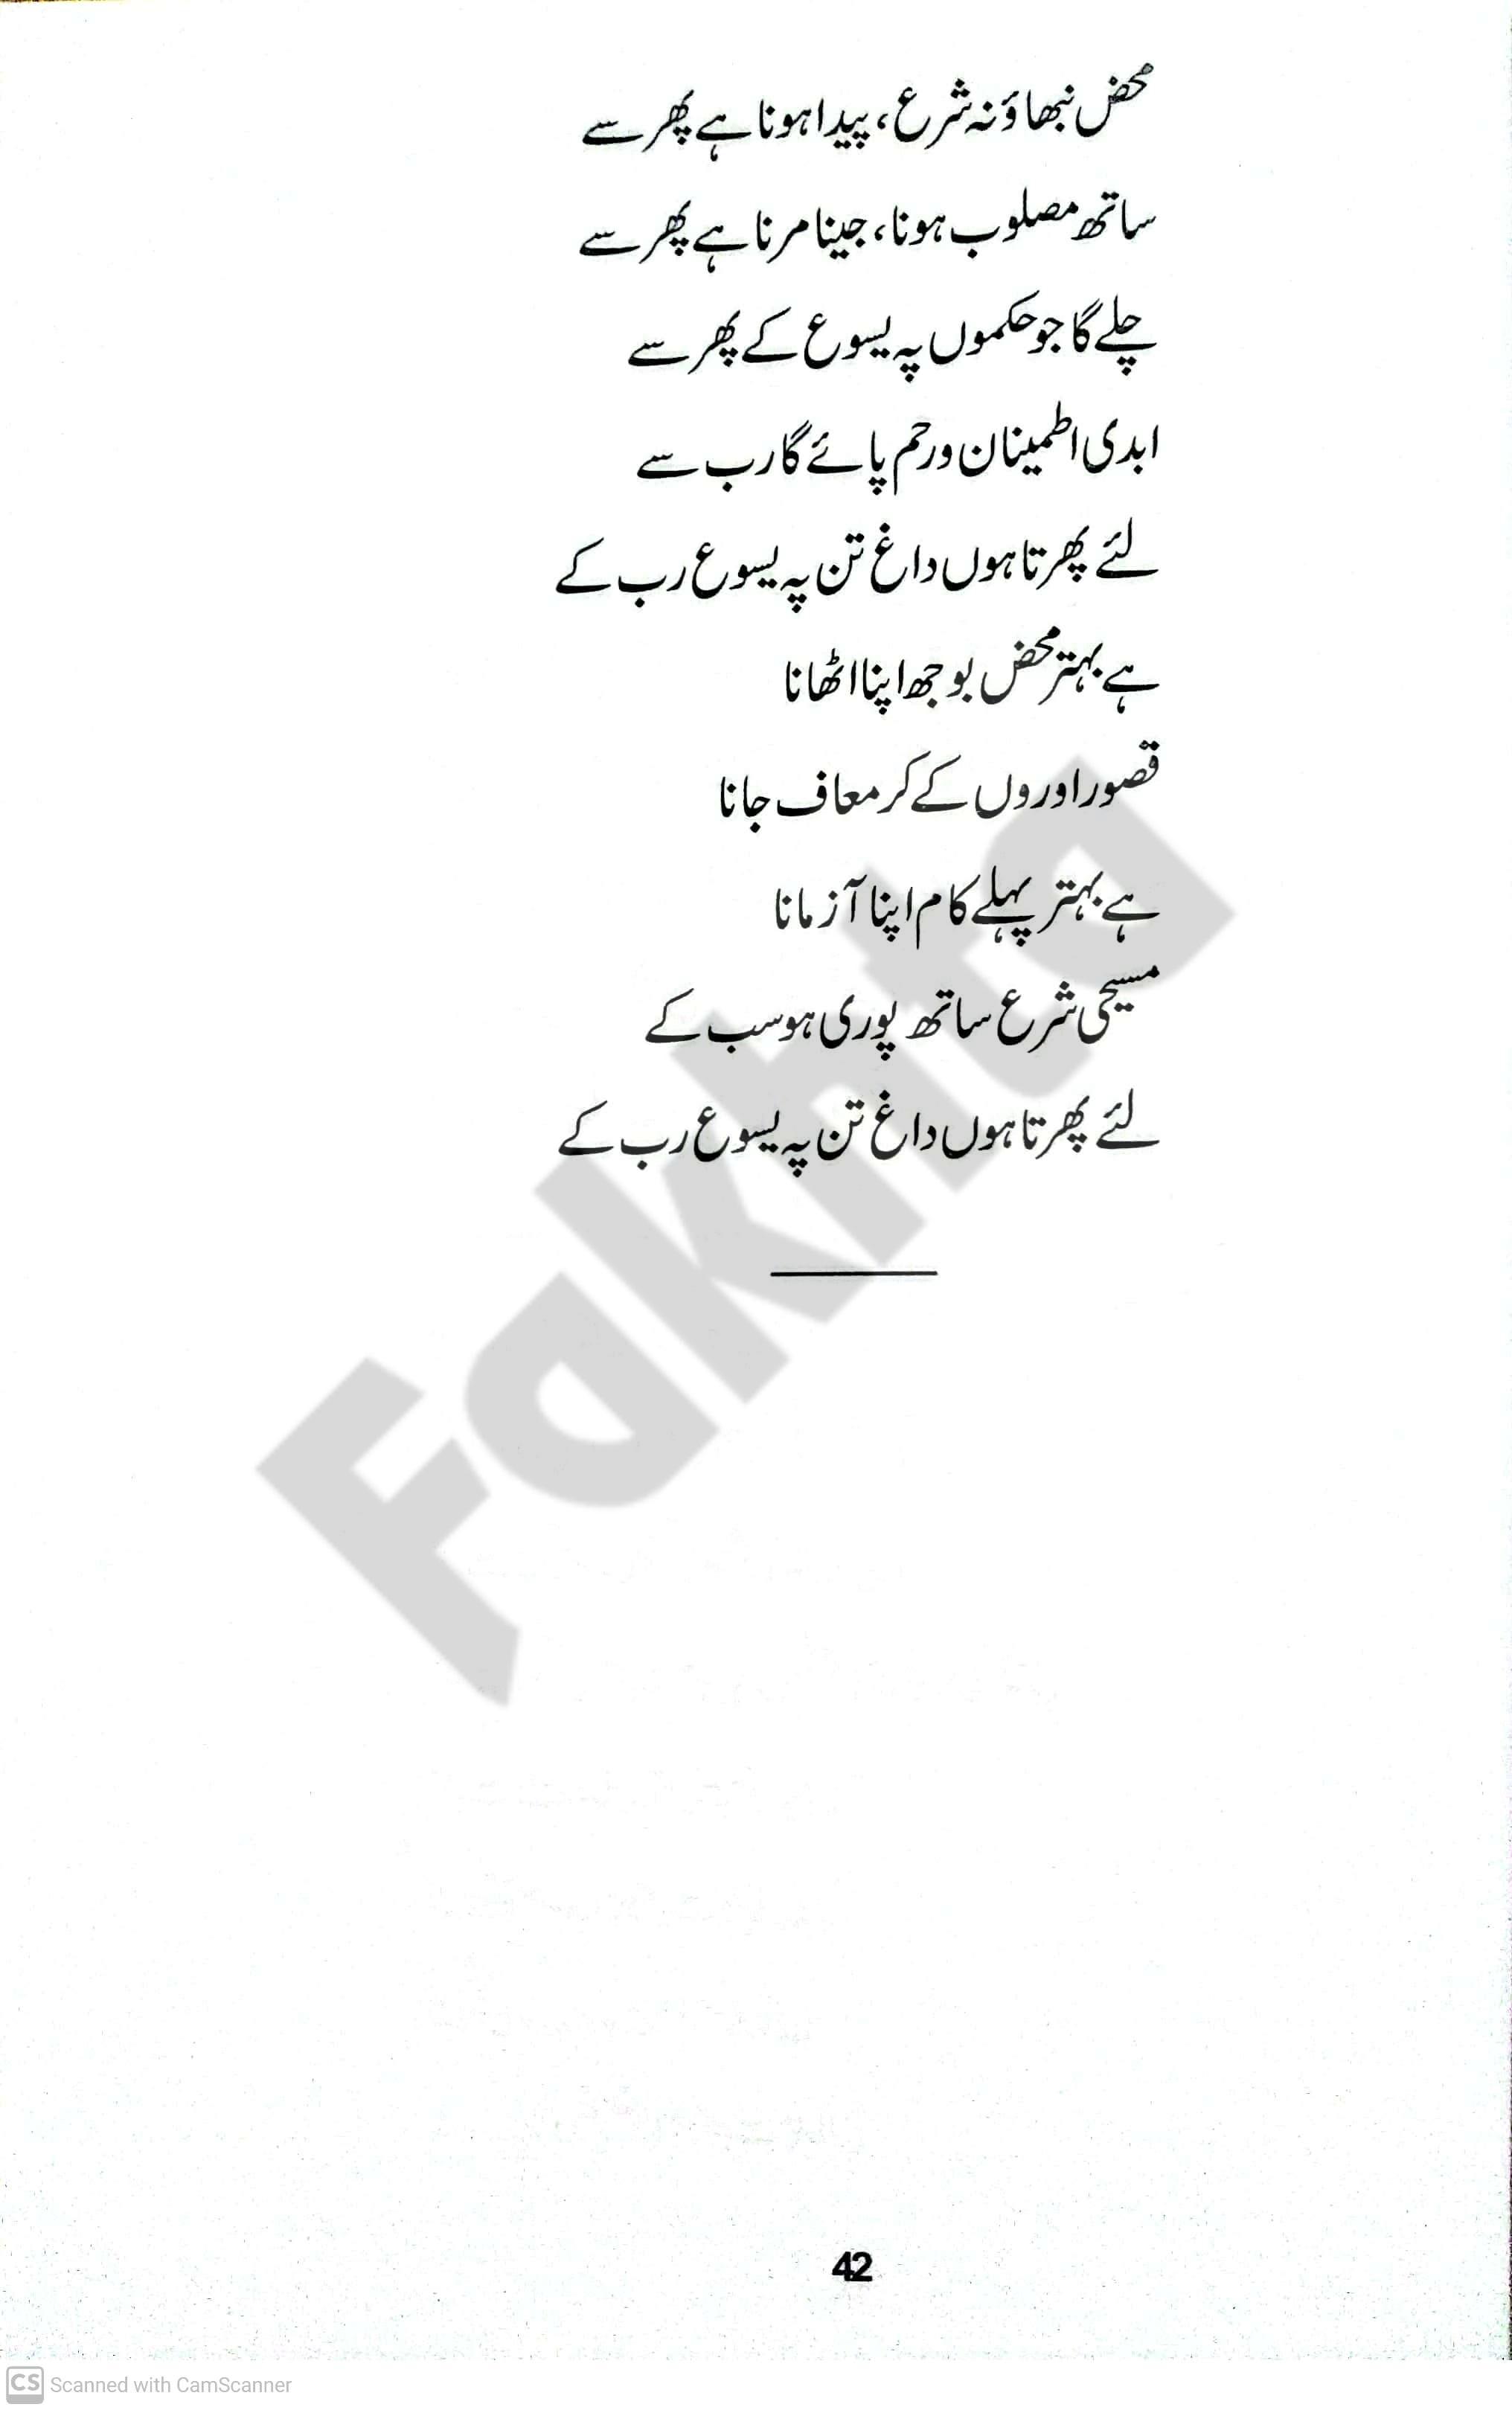 محض نبھاؤ نہ شرع، پیدا ہونا ہے پھر سے
ساتھ مصلوب ہونا، جینا مرنا ہے پھر سے
چلے گا جو حکموں پہ یسوع کے پھر سے
ابدی اطمینان و رحم پائے گا رب سے
لئے پھرتا ہوں داغ تن پہ یسوع رب کے
ہے بہتر محض بوجھ اپنا اٹھانا
قصور اوروں کے کر معاف جانا
ہے بہتر پہلے کام اپنا آزمانا
مسیحی شرع ساتھ پوری ہو سب کے
لئے پھرتا ہوں داغ تن پہ یسوع رب کے
Fakhta
42
CS Scanned with CamScanner